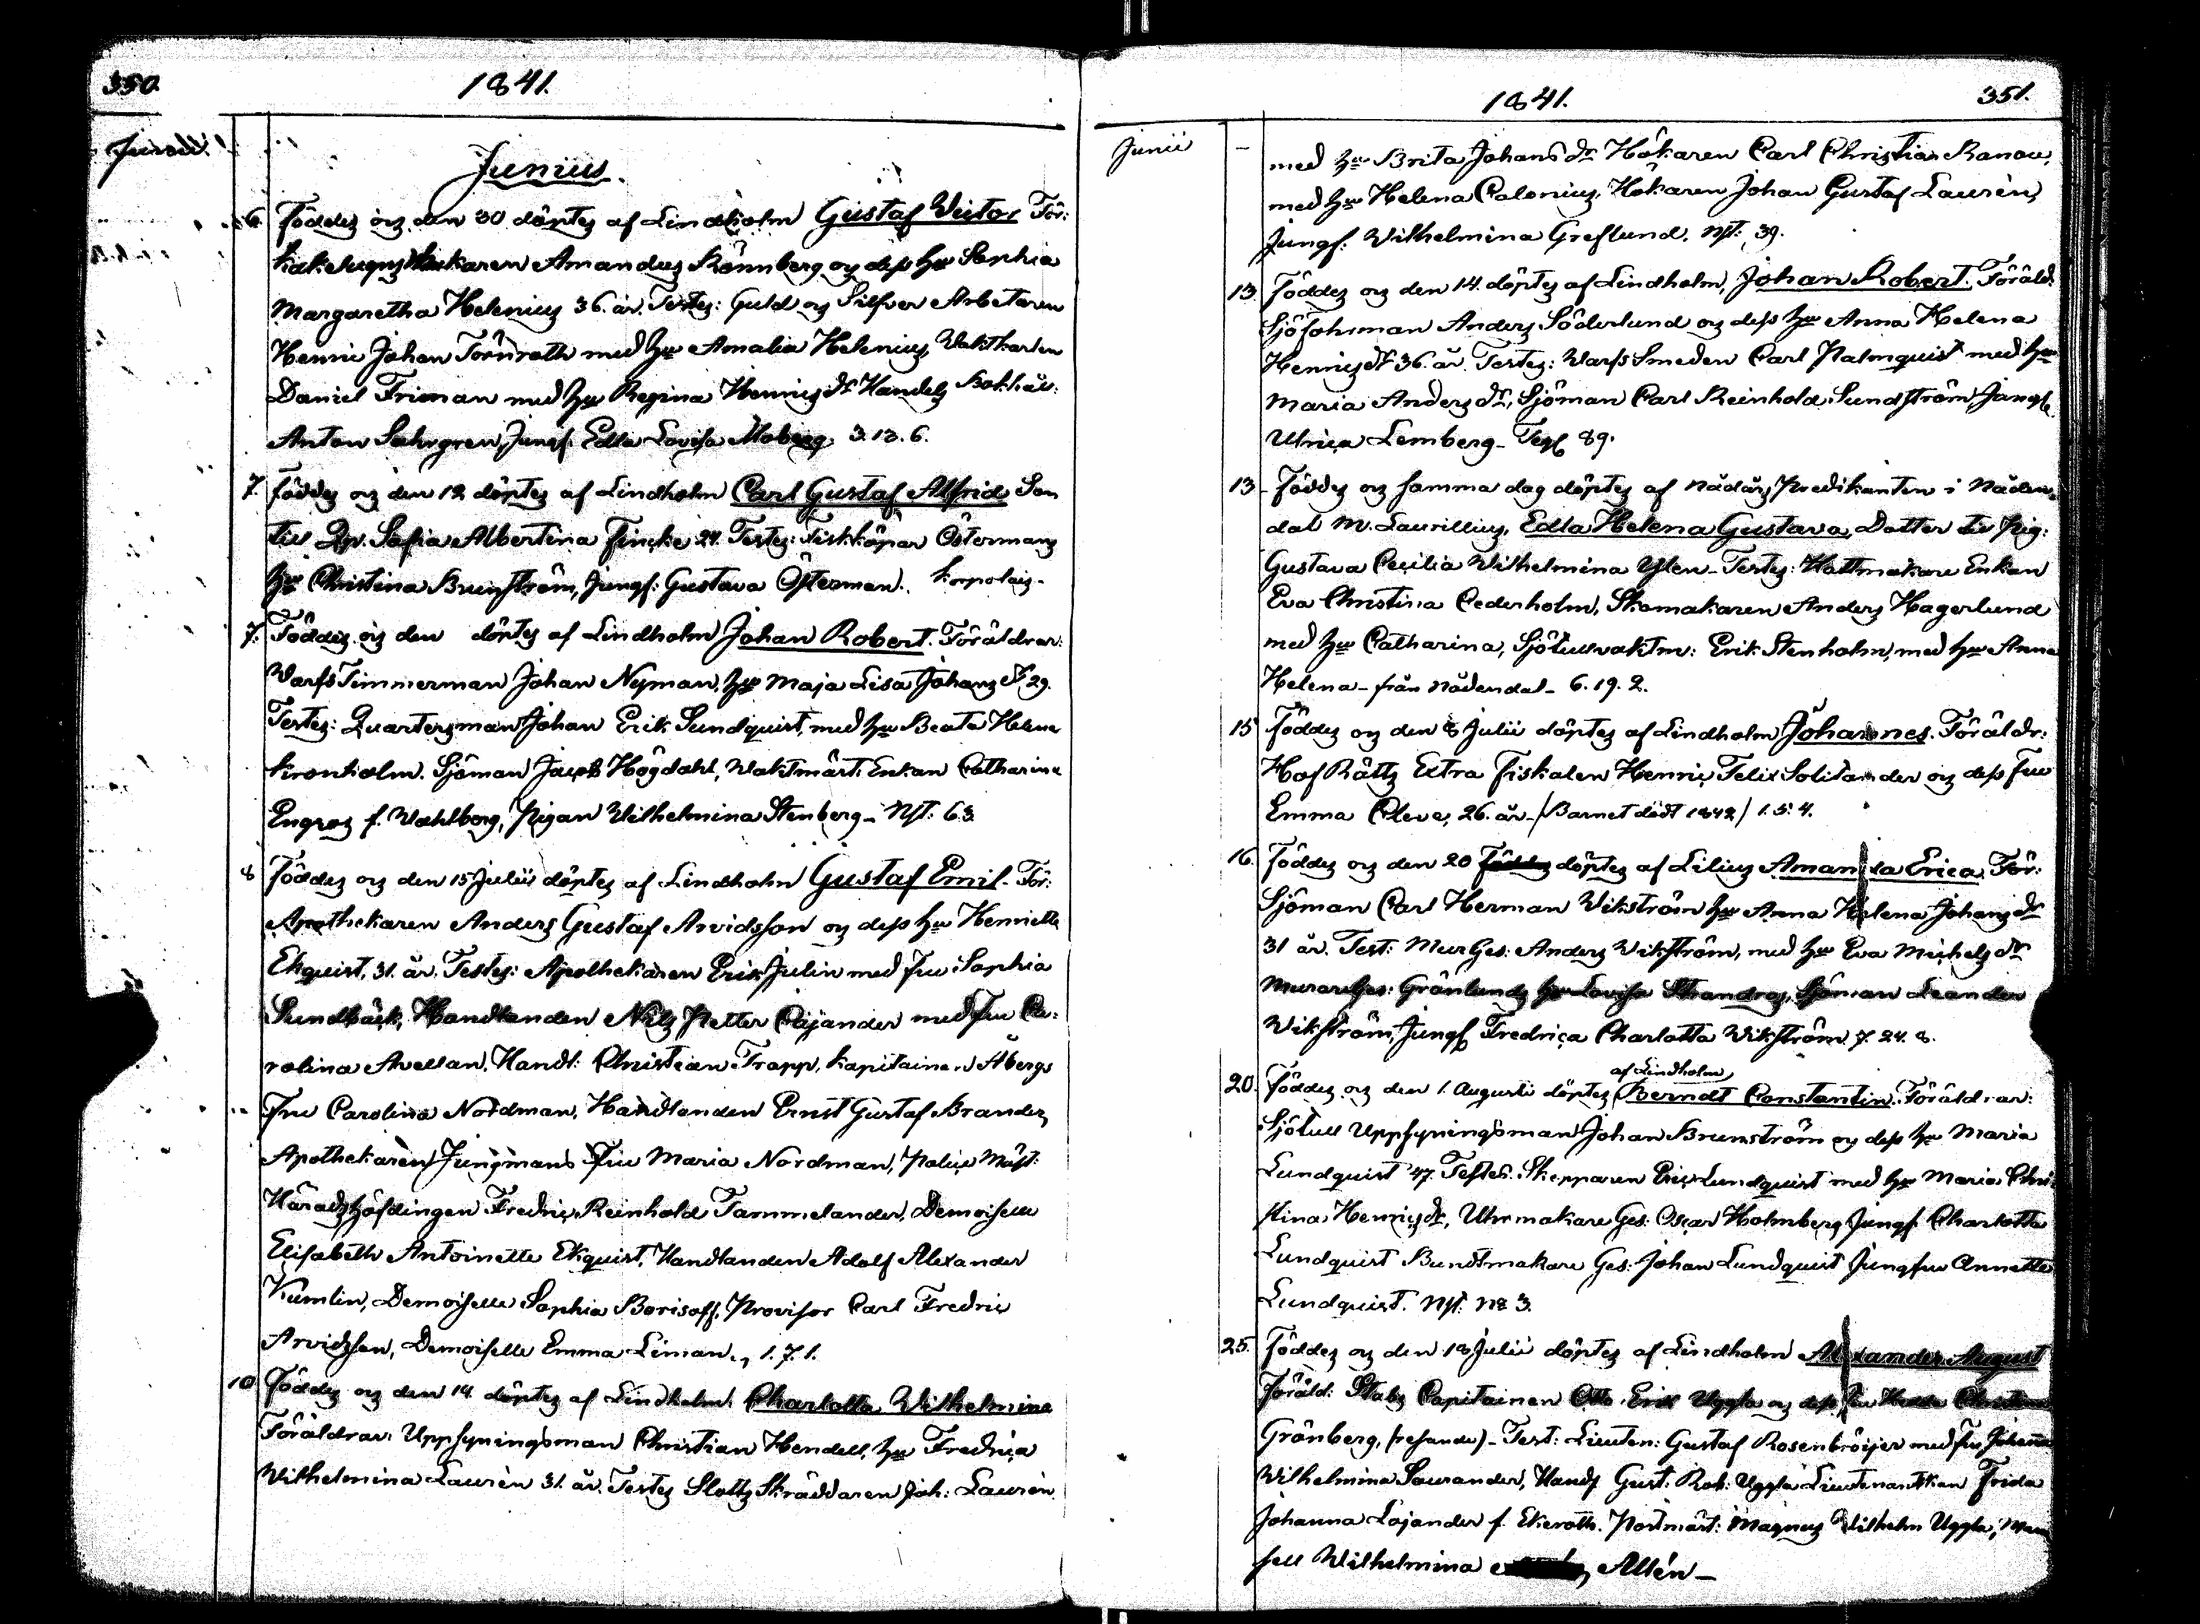 350.
1841.
Junii
Junius.
6. Föddes og den 30 döptes af Lindholm Gustaf Victor För:
Kakelugnsmakaren Amandus Rönnberg og dess hu Sophia
Margaretha Helenius 36. år. Testes: Guld og Silfver Arbetaren
Henric Johan Törnroth med hu Amalia Helenius, Vaktkarlen
Daniel Friman med hu Regina Henricsdr Handels Bokhåll:
Anton Sahrgren, Jungf: Edla Lovisa Moberg. 3. 13. 6.
7. Föddes og den 12 döptes af Lindholm Carl Gustaf Alfrid Son
till Qv. Sofia Albertina Fincke 24. Testes: Fiskköpar Östermans
hu Christina Brunström, Jungf: Gustava Österman.
7. Föddes og den döptes af Lindholm Johan Robert. Föräldrar:
VarfsTimmerman Johan Nyman, hu Maja Lisa Johansdr, 29.
Testes: Quartersman Johan Erik Sundquist, med hu Beata Helena
Kronholm. Sjöman Jacob Högdahl, Vaktmäst: Enkan Catharina
Engros f. Wahlborg, Pigan Wilhelmina Stenberg_ Nst: 63.
8 Föddes og den 15 Julii döptes af Lindholm Gustaf Emil. För:
Apothekaren Anders Gustaf Arvidsson og dess hu Henrietta
Ekquist, 31. år. Testes: Apothekaren Erik Julin med fru Sophia
Sundbäck, Handlanden Nils Petter Cajander med fru Ca:
rolina Avellan, Handl: Christian Trapp, Kapitaine Åbergs
Fru Carolina Nordman, Handlanden Ernst Gustaf Brander,
Apothekaren Jungmans Fru Maria Nordman, Polis Mäst:
Häradshöfdingen Fredric Reinhold Tammelander, Demoiselle
Elisabeth Antoinette Ekquist, Handlanden Adolf Alexander
Kumlin, Demoiselle Sophia Borisoff, Provisor Carl Fredric
Arvidsson, Demoiselle Emma Liman., 1. 7. 1.
10 Föddes og den 14. döptes af Lindholm, Charlotta Wilhelmina
Föräldrar: Uppsyningsman Christian Hendell, hu Fredrica
Wilhelmina Laurén 31. år. Testes Slotts Skräddaren Joh: Laurén
1841.
351.
Junii
med hu Brita Johansdr Hökaren Carl Christian Ranou,
med hu Helena Calonius, Hökaren Johan Gustaf Laurén,
Jungf: Wilhelmina Greslund. Nst: 39.
13. Föddes og den 14. döptes af Lindholm, Johan Robert. Föräld:
Sjöfohrman Anders Söderlund og dess hu Anna Helena
Henricsdr 36. år. Testes: Varfs Smeden Carl Palmquist med hu
Maria Andersdr, Sjöman Carl Reinhold Sundström, Jungf
Ulrica Lemberg_ 89.
13 - Föddes og samma dag döptes af Nådårs Predikanten i Nåden-
dal M. Laurillius, Edla Helena Gustava, Dotter till Pig:
Gustava Cecilia Wilhelmina Ylen_ Testes: Hattmakare Enkan
Eva Christina Cederholm, Skomakaren Anders Hagerlund
med hu Catharina, Sjötullvaktm: Erik Stenholm, med hu Anna
Helena_ från Nådendal_ 6. 19. 2.
15 Föddes og den 8 Julii döptes af Lindholm Johannes. Föräldr:
Hof Rätts Extra Fiskalen Henric Felix Solitander og dess fru
Emma Cleve, 26. år_ /Barnet dödt 1842/ 1. 5. 4.
16. Föddes og den 20 döptes af Lilius Amanda Erica. För:
Sjöman Carl Herman Vikström hu Anna Helena Johansdr
31 år. Test: MurGes: Anders Wikström, med hu Eva Michelsdr
MurareGes: Grönlunds hu Lovisa Sjöman Leander
Wikström, Jungf Fredrica Charlotta Wikström. 7. 24. 8.
af Lindholm
20. Föddes og den 1. Augusti döptes Berndt Constantin. Föräldrar:
Sjötull Uppsyningsman Johan Brunström og dess hu Maria
Lundquist 47. Testes. Skepparen Eric Lundquist med hu Maria Chri
stina Henricsdr, Uhrmakare Ges: Oscar Holmberg, Jungf: Charlotta
Lundquist Buntmakare Ges: Johan Lundquist Jungfru Annette
Lundquist. Nst: N: 3.
25. Föddes og den 18 Julii döptes af Lindholm Alexander August
Föräld: Stabs Capitainen Otto Erik Uggla og dess fru Hedda Christina
Grönberg, (resande)_ Test: Lieuten: Gustaf Rosenbröijer med fru Johanna
Wilhelmina Saurander, Handl Gust: Rob: Uggla Lieutenantskan Frida
Johanna Lojander f. Ekeroth. Postmäst: Magnus Wilhelm Uggla, Mam
sell Wilhelmina Allén_